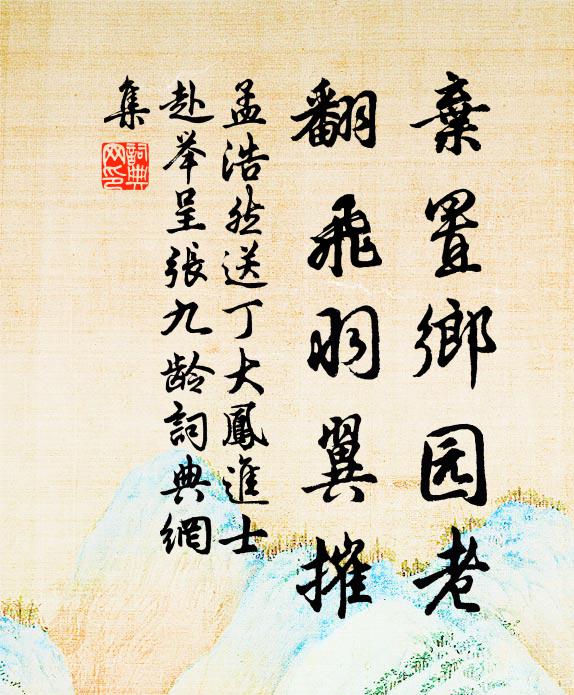 棄置鄉园老
翻飛羽翼摧
孟浩然送丁大鳳進士
赴举呈張九龄詞典網
集
詞典网印